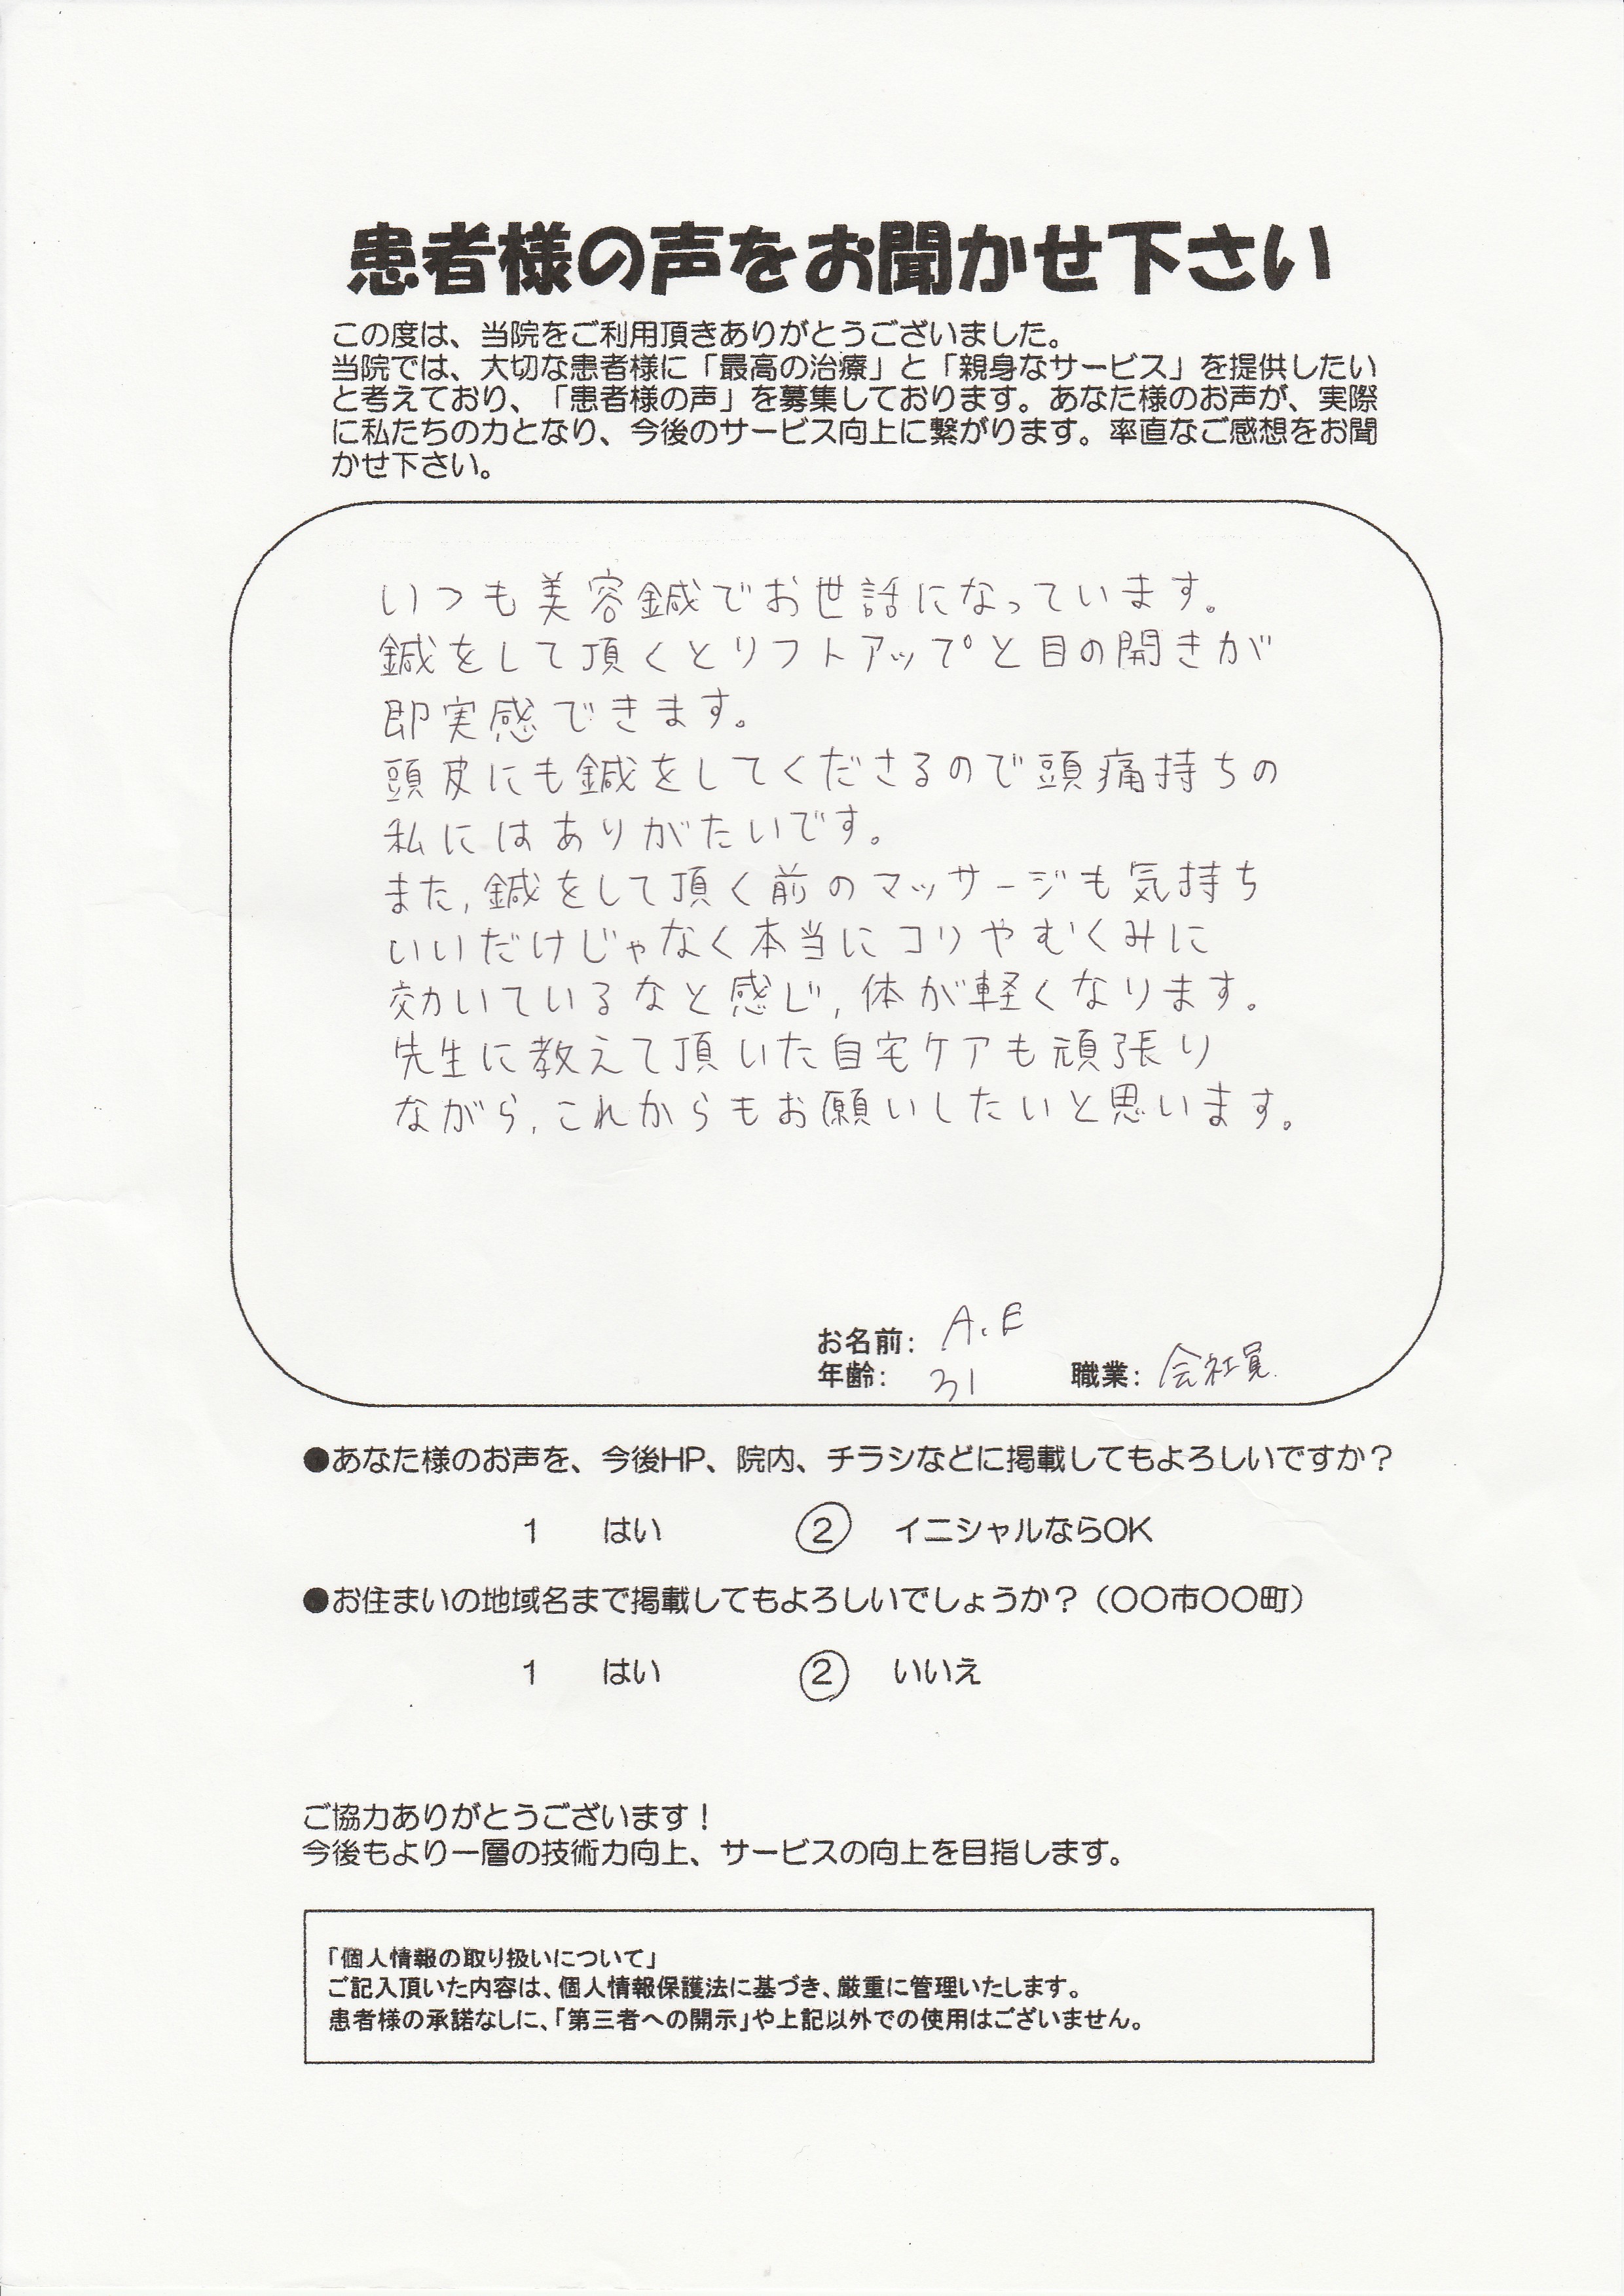 患者様の声をお聞かせ下さい
この度は、当院をご利用頂きありがとうございました。
当院では、大切な患者様に「最高の治療」と「親身なサービス」を提供したい
と考えており、「患者様の声」を募集しております。あなた様のお声が、実際
に私たちの力となり、今後のサービス向上に繋がります。率直なご感想をお聞
かせ下さい。
いつも美容鍼でお世話になっています。
鍼をして頂くとリフトアップと目の開きが
即実感できます。
頭皮にも鍼をしてくださるので頭痛持ちの
私にはありがたいです。
また,鍼をして頂く前のマッサージも気持ち
いいだけじゃなく本当にコリやむくみに
効いているなと感じ,体が軽くなります。
先生に教えて頂いた自宅ケアも頑張り
ながら,これからもお願いしたいと思います。
お名前: A.E
年齢: 31 職業: 会社員
●あなた様のお声を、今後HP、院内、チラシなどに掲載してもよろしいですか？
1 はい ② イニシャルならOK
●お住まいの地域名まで掲載してもよろしいでしょうか？（〇〇市〇〇町）
1 はい ② いいえ
ご協力ありがとうございます！
今後もより一層の技術力向上、サービスの向上を目指します。
「個人情報の取り扱いについて」
ご記入頂いた内容は、個人情報保護法に基づき、厳重に管理いたします。
患者様の承諾なしに、「第三者への開示」や上記以外での使用はございません。